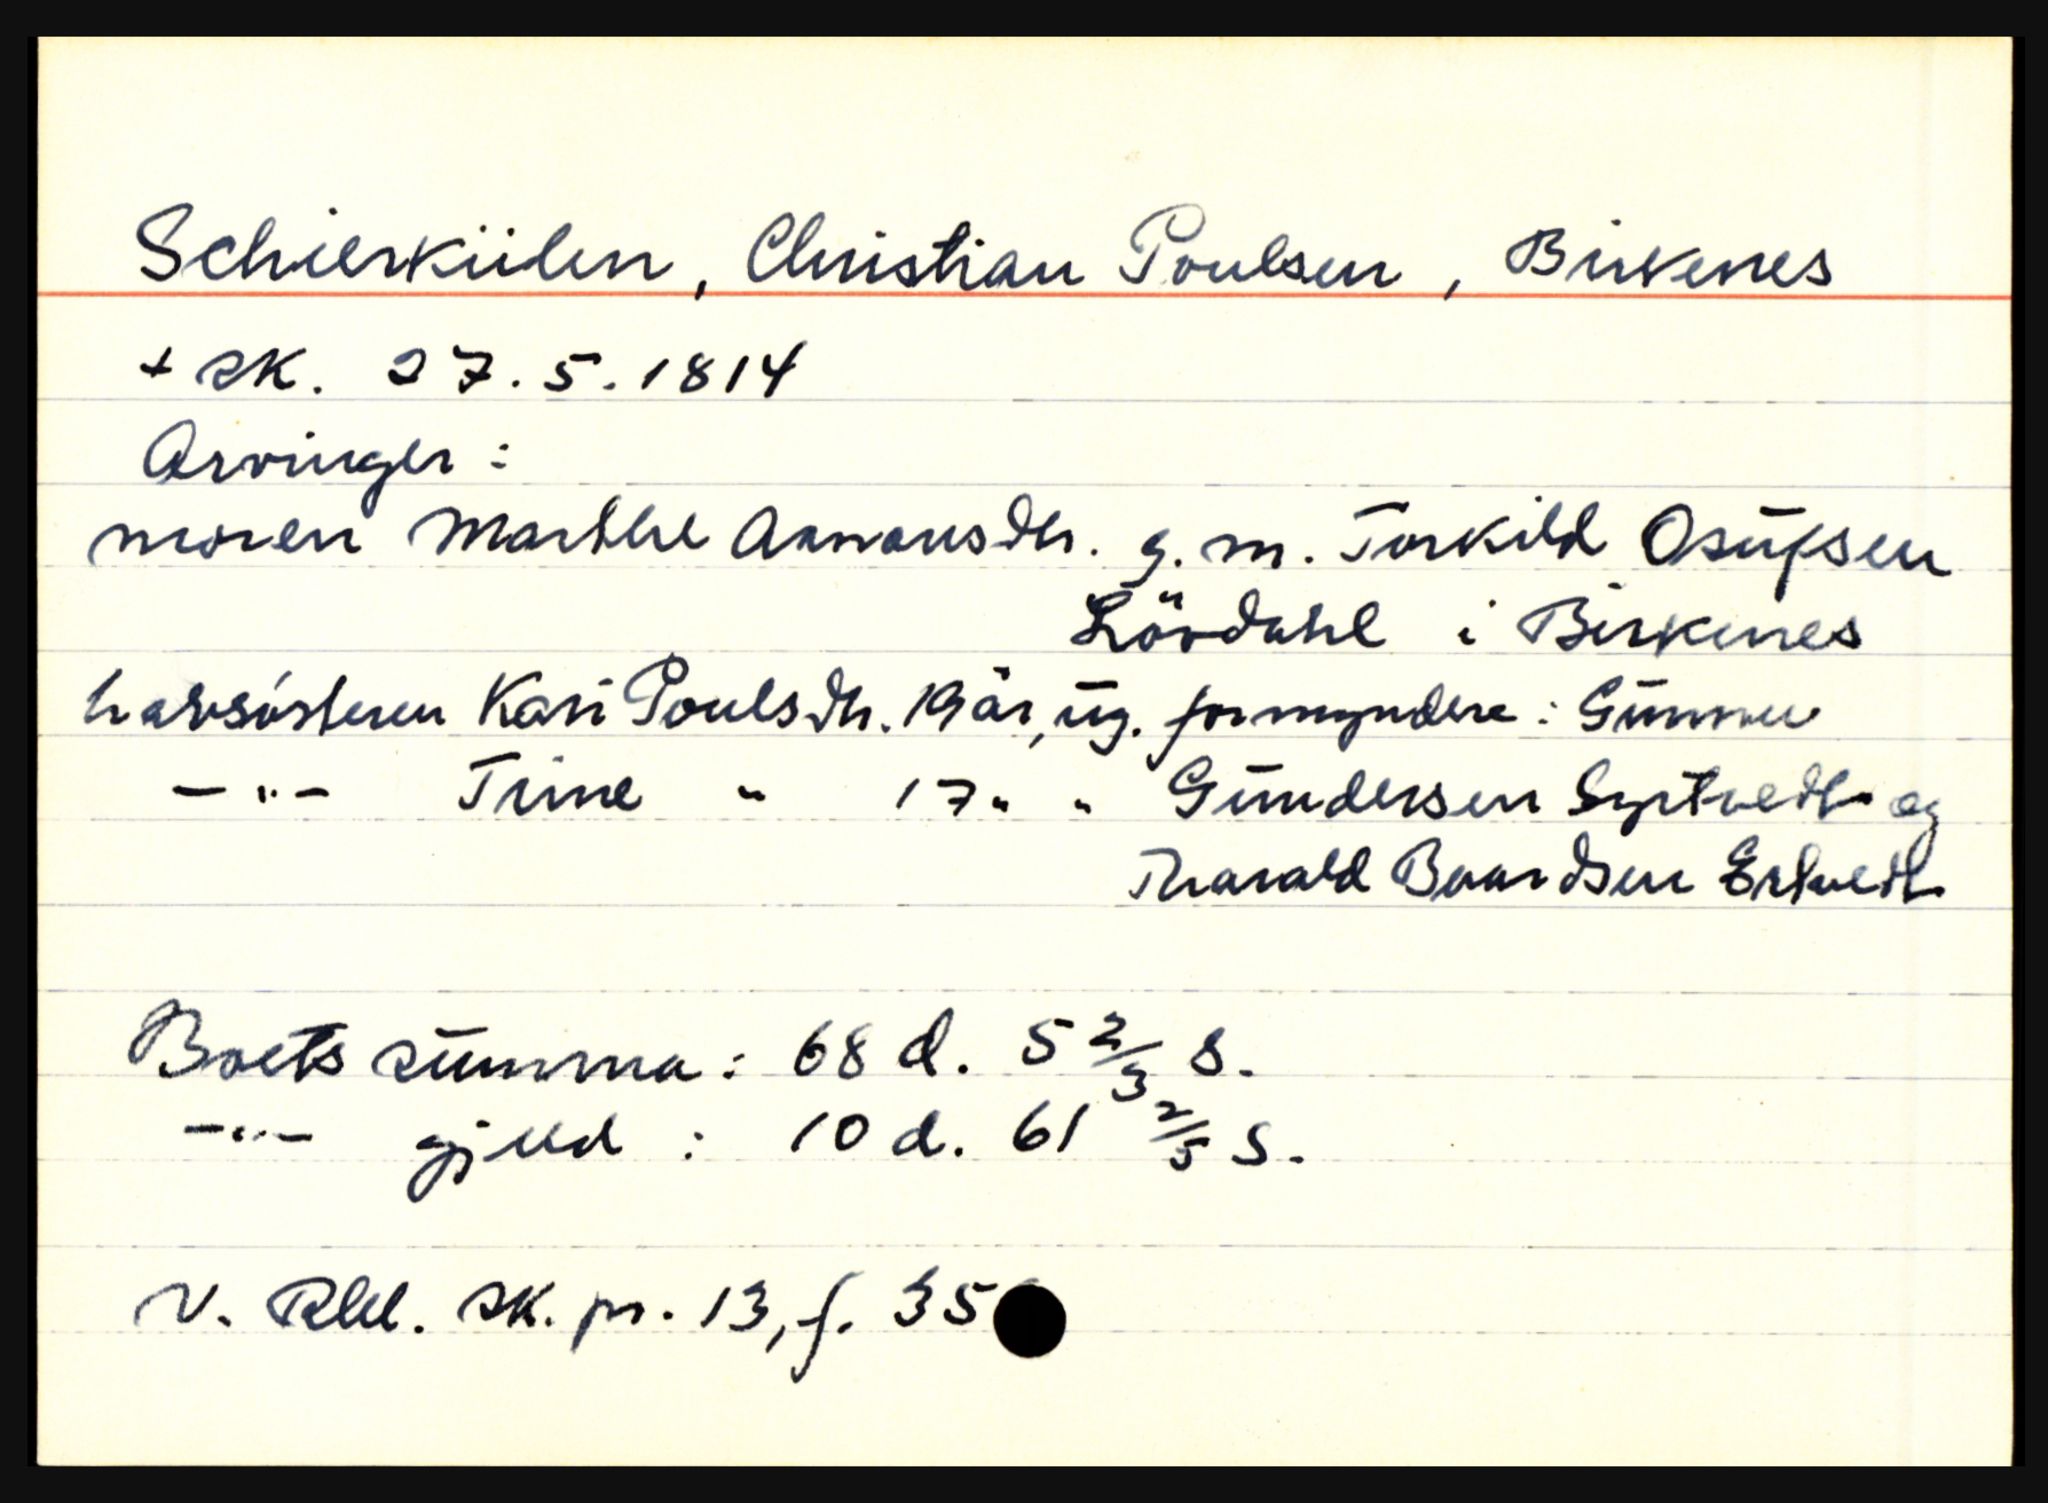 Schierkülen, Christian Poulsen, Birkenes
+ sk. 27.5.1814
Arvinger:
moren Marthe Aanonsdtr. g.m. Torkild Osufsen
Lövdahl i Birkenes
halvsösteren Kari Poulsdtr. 19 år, ug. formyndere: Gunnu
-"- Trine " 17 " " Gundersen Syrtvedt og
Tharald Baardsen Ertvedt
Boets summa: 68 d. 5 2/3 S.
-"- gjeld: 10 d. 61 2/5 S.
V. Rbl. sk. pr. 13, f. 35